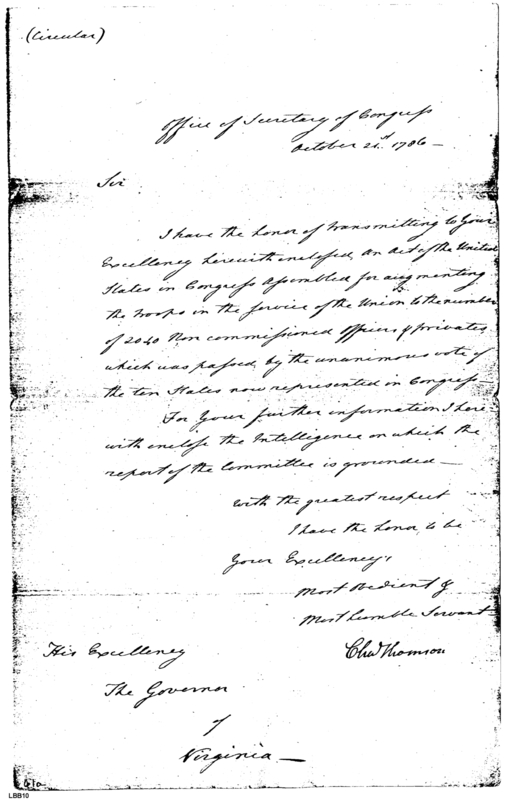 (Circular)
Office of Secretary of Congress
October 21st 1786 —
Sir
I have the honor of transmitting to Your
Excellency herewith enclosed an Act of the United
States in Congress Assembled for augmenting
the troops in the service of the Union to the number
of 2040 Non commissioned Officers & privates
which was passed by the unanimous vote of
the ten States now represented in Congress —
For Your further information I here
with enclose the Intelligence on which the
report of the Committee is grounded —
With the greatest respect
I have the honor to be
Your Excellency's
Most Obedient &
Most humble Servant
Chas Thomson
His Excellency
The Governor
of
Virginia —
LBB10